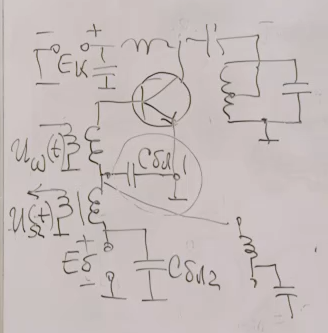 − +
Eк
Uω(t)
Cбл1
UΩ(t)
+
Eб
−
Cбл2